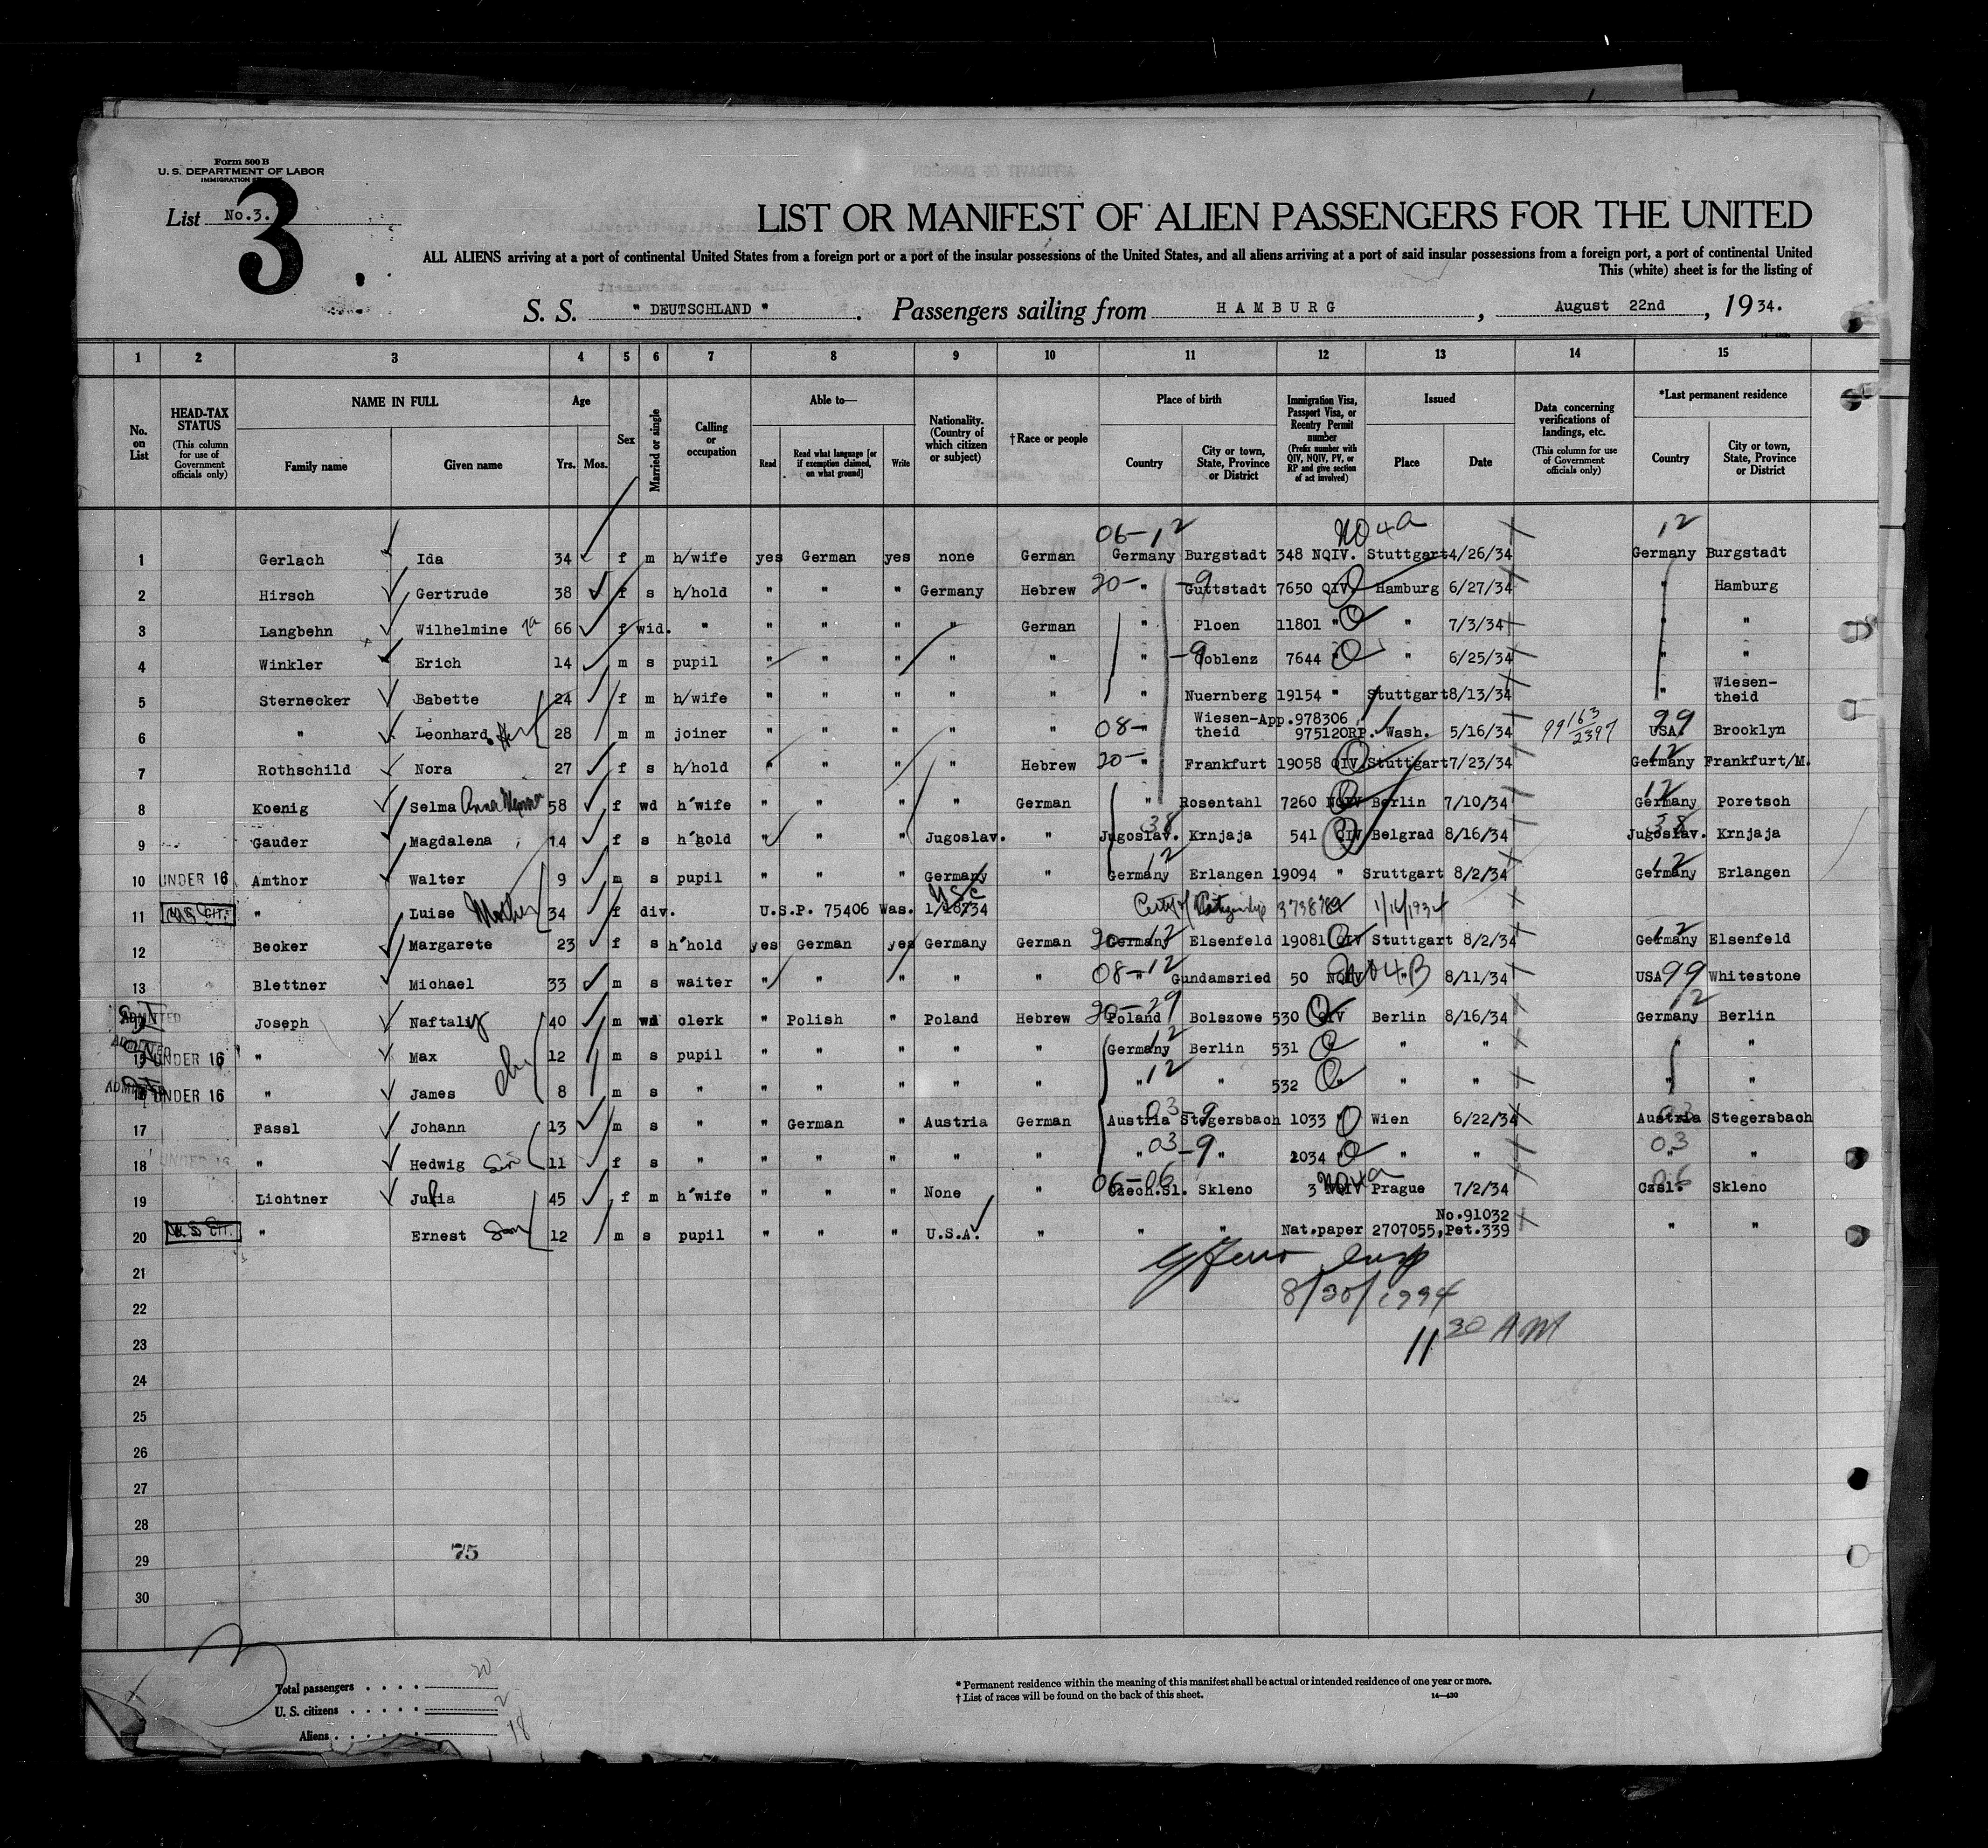 Form 500 B
U. S. DEPARTMENT OF LABOR
IMMIGRATION
List No.3.
3
LIST OR MANIFEST OF ALIEN PASSENGERS FOR THE UNITED
ALL ALIENS arriving at a port of continental United States from a foreign port or a port of the insular possessions of the United States, and all aliens arriving at a port of said insular possessions from a foreign port, a port of continental United
This (white) sheet is for the listing of
S. S. " DEUTSCHLAND " . Passengers sailing from HAMBURG , August 22nd , 1934.
1 2 3 4 5 6 7 8 9 10 11 12 13 14 15
No. on List
HEAD-TAX STATUS (This column for use of Government officials only)
NAME IN FULL Family name Given name
Age Yrs. Mos.
Sex
Married or single
Calling or occupation
Able to— Read Read what language [or if exemption claimed, on what ground] Write
Nationality. (Country of which citizen or subject)
†Race or people
Place of birth Country City or town, State, Province or District
Immigration Visa, Passport Visa, or Reentry Permit number (Prefix number with QIV, NQIV, PV, or RP and give section of act involved)
Issued Place Date
Data concerning verifications of landings, etc. (This column for use of Government officials only)
*Last permanent residence Country City or town, State, Province or District
06-12 NO 4a 12
1 Gerlach Ida 34 f m h/wife yes German yes none German Germany Burgstadt 348 NQIV. Stuttgart 4/26/34 Germany Burgstadt
2 Hirsch Gertrude 38 f s h/hold " " " Germany Hebrew 20- " -9 Guttstadt 7650 QIV. Hamburg 6/27/34 " Hamburg
3 Langbehn Wilhelmine 66 f wid. " " " " " German " Ploen 11801 " " 7/3/34 " "
4 Winkler Erich 14 m s pupil " " " " " " -9 Coblenz 7644 " " 6/25/34 " "
5 Sternecker Babette 24 f m h/wife " " " " " " Nuernberg 19154 " Stuttgart 8/13/34 " Wiesen-theid
6 " Leonhard 28 m m joiner " " " " " 08- Wiesen-theid App.978306 975120RP. Wash. 5/16/34 99 163/2397 99 USA. Brooklyn
7 Rothschild Nora 27 f s h/hold " " " " Hebrew 20- " Frankfurt 19058 QIV. Stuttgart 7/23/34 12 Germany Frankfurt/M.
8 Koenig Selma Anna 58 f wd h'wife " " " " German " Rosentahl 7260 NQIV Berlin 7/10/34 12 Germany Poretsch
9 Gauder Magdalena 14 f s h'hold " " " Jugoslav. " 38 Jugoslav. Krnjaja 541 QIV Belgrad 8/16/34 38 Jugoslav. Krnjaja
10 UNDER 16 Amthor Walter 9 m s pupil " " " Germany " 12 Germany Erlangen 19094 " Sruttgart 8/2/34 12 Germany Erlangen
11 U.S. CIT. " Luise Mother 34 f div. U.S.P. 75406 Was. 1/18/34 USC Certf of Citizenship 1/16/1934
12 Becker Margarete 23 f s h'hold yes German yes Germany German 20-12 Germany Elsenfeld 19081 QIV Stuttgart 8/2/34 12 Germany Elsenfeld
13 Blettner Michael 33 m s waiter " " " " " 08-12 " Gundamsried 50 NQIV NO 4B " 8/11/34 USA 99 Whitestone
ADMITTED Joseph Naftali 40 m wd clerk " Polish " Poland Hebrew 20-29 Poland Bolszowe 530 QIV Berlin 8/16/34 12 Germany Berlin
15 UNDER 16 " Max 12 m s pupil " " " " " 12 Germany Berlin 531 " " " " "
ADMITTED UNDER 16 " James 8 m s " " " " " " 12 " " 532 " " " " "
17 Fassl Johann 13 m s " " German " Austria German 03-9 Austria Stegersbach 1033 " Wien 6/22/34 03 Austria Stegersbach
18 UNDER 16 " Hedwig 11 f s " " " " " " 03-9 " " 1034 " " " 03 " "
19 Lichtner Julia 45 f m h'wife " " " None " 06-06 Czech.Sl. Skleno 3 NQIV NO 4a Prague 7/2/34 06 Czsl. Skleno
20 U.S. CIT. " Ernest Son 12 m s pupil " " " U.S.A. " " " Nat.paper 2707055, No.91032 Pet.339 " "
21
22 8/30/1934
23 11 30 AM
24
25
26
27
28
29 75
30
Total passengers . . . . 20
U. S. citizens . . . . . 2
Aliens . . . . . . 18
* Permanent residence within the meaning of this manifest shall be actual or intended residence of one year or more.
† List of races will be found on the back of this sheet. 14—430